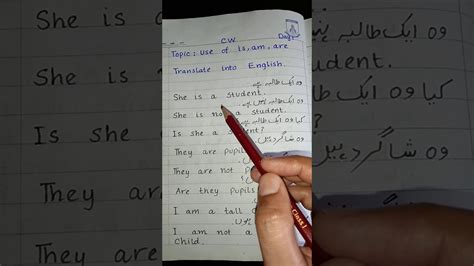 CW
Day:
Topic: use of is, am, are
Translate into English.
وہ ایک طالبہ ہے۔
She is a student.
وہ ایک طالبہ نہیں ہے۔
She is not a student.
کیا وہ ایک طالبہ ہے؟
Is she a student?
وہ شاگرد ہیں۔
They are pupils
They are not
Are they pupils
I am a tall
I am not a
Child.
She is
Is she
They a
student.
وہ ایک طالبہ
وہ شاگرد ہیں